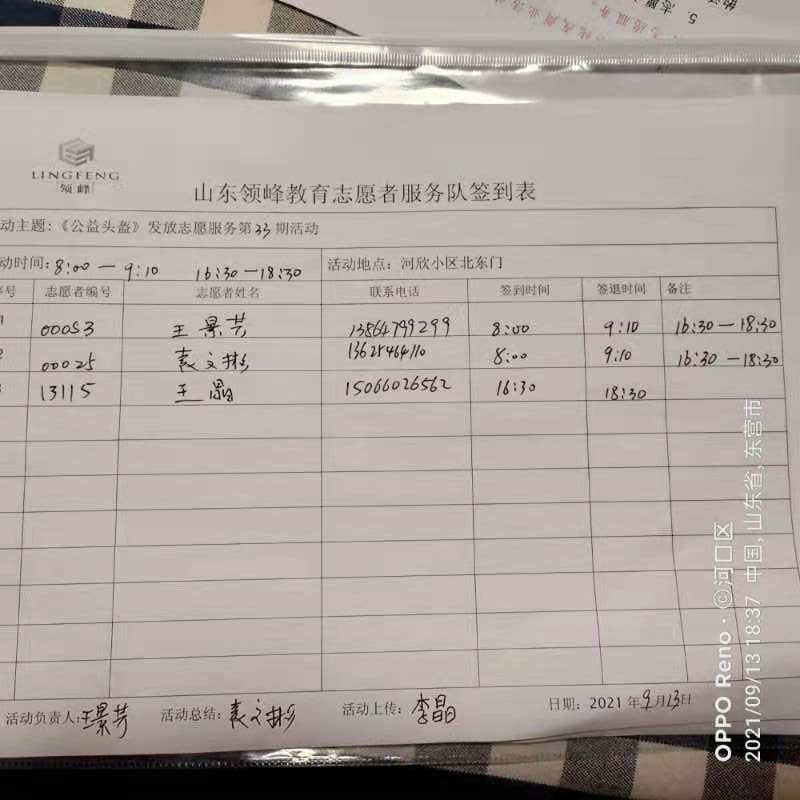 5. 志愿
LINGFENG
领峰
山东领峰教育志愿者服务队签到表
动主题:《公益头盔》发放志愿服务第33期活动
动时间: 8:00 — 9:10 16:30—18:30 活动地点: 河欣小区北东门
序号 志愿者编号 志愿者姓名 联系电话 签到时间 签退时间 备注
1 00053 王景芳 13864799299 8:00 9:10 16:30—18:30
2 00025 袁文彬 13625464110 8:00 9:10 16:30—18:30
13115 王晶 15066026562 16:30 18:30
活动负责人: 王景芳 活动总结: 袁文彬 活动上传: 李晶 日期: 2021年9月13日
OPPO Reno · ©河口区
2021/09/13 18:37 中国, 山东省, 东营市